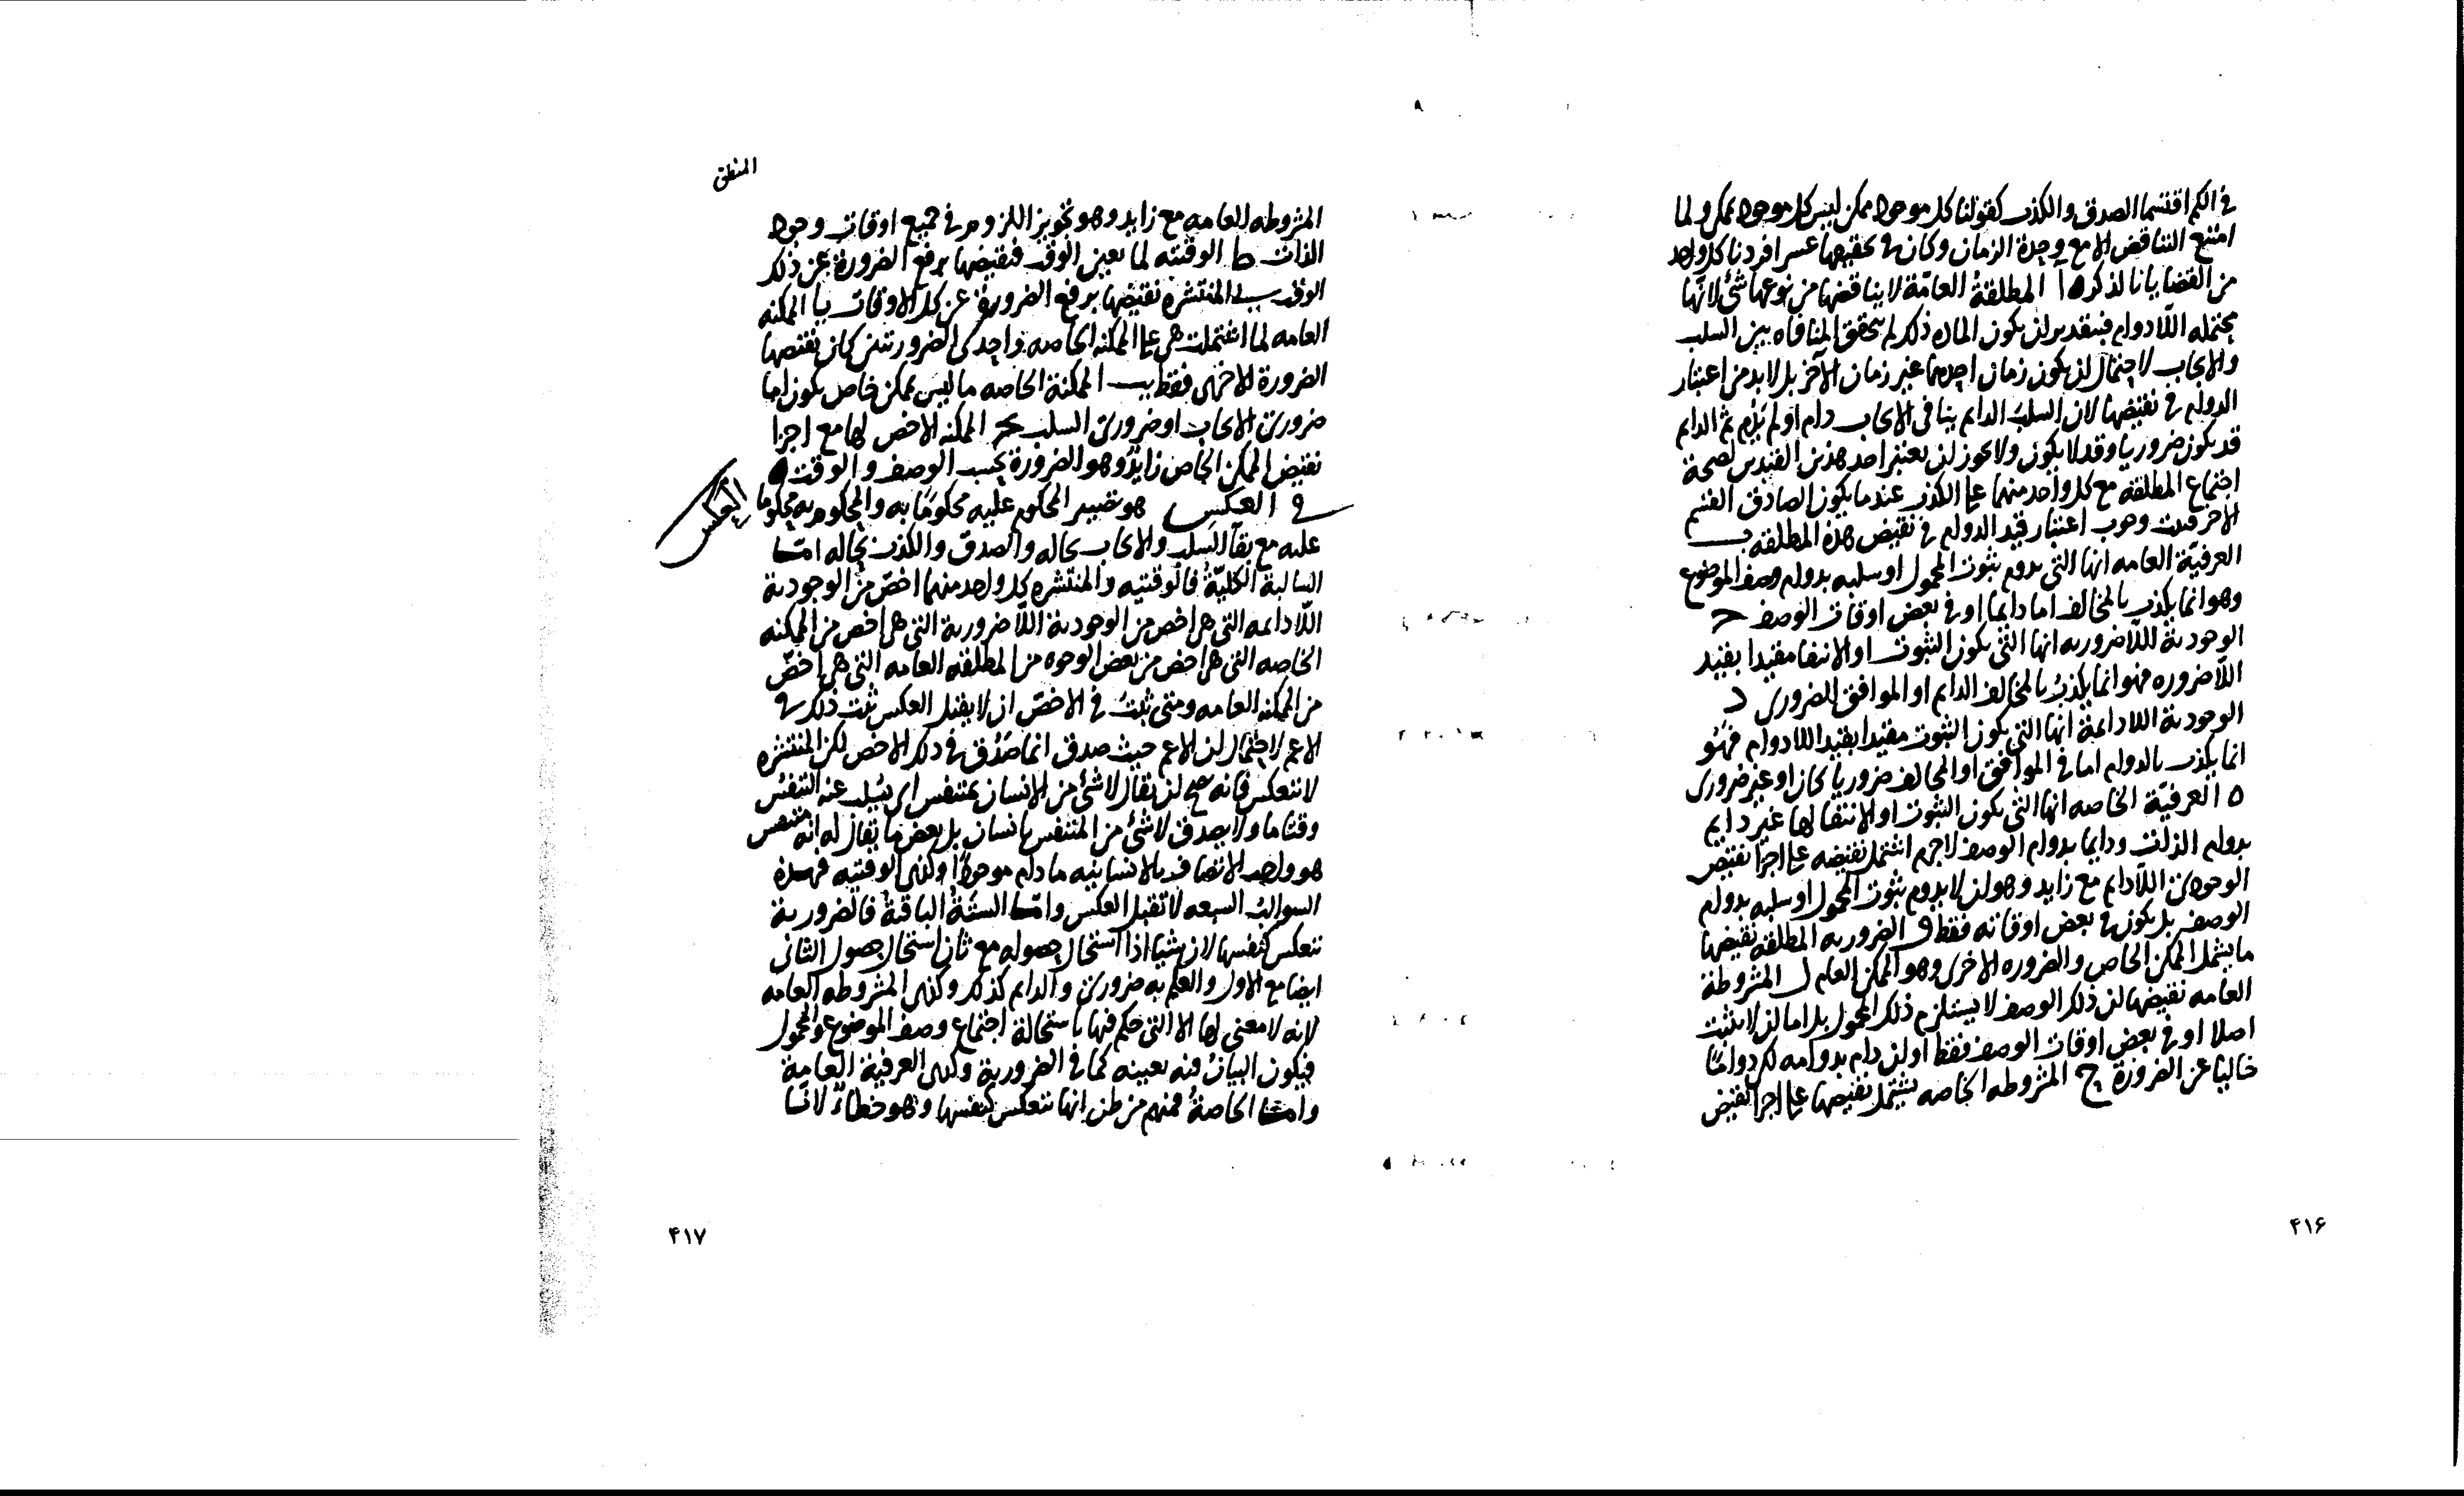 في الكم اقتسما الصدق والكذب كقولنا كل موجود ممكن ليس كل موجود بممكن ولما
امتنع التناقض الا مع وحدة الزمان وكان في تحقيقها عسر افردنا كل واحد
من القضايا بالذكر ه ا المطلقة العامّة لا يناقضها من نوعها شئ لانها
محتملة اللّادوام فبتقدير ان يكون المادة ذلك لم يتحقق المنافاه بين السلب
والايجاب لاحتمال ان يكون زمان احدهما غير زمان الآخر بل لا بد من اعتبار
الدوام في نقيضها لان السلب الدايم ينافي الايجاب دام او لم يدم ثم الدايم
قد يكون ضروريا وقد لا يكون ولا يجوز ان يعتبر احد هذين القيدين لصحة
اجتماع المطلقه مع كل واحد منهما على الكذب عندما يكون الصادق القسم
الاخر فثبت وجوب اعتبار قيد الدوام في نقيض هذه المطلقه ب
العرفيّة العامه انها التي يدوم ثبوت المحمول او سلبه بدوام وصف الموضوع
وهو انما يكذب بالمخالف اما دايما او في بعض اوقات الوصف ج
الوجودية اللّاضروريه انها التي يكون الثبوت او الانتفا مقيدا بقيد
اللّاضروره فهو انما يكذب بالمخالف الدايم او الموافق الضروري د
الوجودية اللادايمة انها التي يكون الثبوت مقيدا بقيد اللادوام فهو
انما يكذب بالدوام اما في الموافق او المخالف ضروريا كان او غير ضروري
ه العرفيّة الخاصه انها التي يكون الثبوت او الانتفا لها غير دايم
بدوام الذات ودايما بدوام الوصف لاجرم اشتمل نقيضه على اجزا نقيض
الوجودي اللّادايم مع زايد وهو ان لا يدوم ثبوت المحمول او سلبه بدوام
الوصف بل يكون في بعض اوقاته فقط و الضروريه المطلقه نقيضها
ما يشمل الممكن الخاص والضروره الاخرى وهو الممكن العام ز المشروطة
العامه نقيضها ان ذلك الوصف لا يستلزم ذلك المحمول بل اما ان لا يثبت
اصلا او في بعض اوقات الوصف فقط او ان دام بدوامه لكن دواما
خاليا عن الضرورة ح المشروطه الخاصه يشتمل نقيضها على اجزا نقيض
٤١۶
المنطق
المشروطه العامه مع زايد وهو تجويز اللزوم في جميع اوقات وجود
الذات ط الوقتيه لما تعين الوقت فنقيضها برفع الضرورة عن ذلك
الوقت ي المنتشره نقيضها برفع الضرورة عن كل الاوقات يا الممكنه
العامه لما اشتملت هي على الممكنه الخاصه واحدى الضرورتين كان نقيضها
الضرورة الاخرى فقط يب الممكنة الخاصه ما ليس بممكن خاص يكون اما
ضروري الايجاب او ضروري السلب يج الممكنه الاخص لها مع اجزا
نقيض الممكن الخاص زايد وهو الضرورة بحسب الوصف والوقت ه
في العكس هو تصيير المحكوم عليه محكوما به والمحكوم به محكوما
العكس
عليه مع بقآ السلب والايجاب بحاله والصدق والكذب بحاله امّا
السالبة الكليّة فالوقتيه والمنتشره كل واحد منهما اخص من الوجودية
اللّادايمه التي هي اخص من الوجودية اللّاضرورية التي هي اخص من الممكنه
الخاصه التي هي اخص من بعض الوجوه من المطلقه العامه التي هي اخصّ
من الممكنه العامه ومتى ثبت في الاخصّ ان لا يقبل العكس ثبت ذلك في
الاعم لاحتمال ان الاعم حيث صدق انما صَدَق في ذلك الاخص لكن المنتشره
لا تنعكس فانه صح ان يقال لا شئ من الانسان بمتنفس اي يُسلب عنه التنفس
وقتا ما ولا يصدق لا شئ من المتنفس بانسان بل بعض ما يقال له انه متنفس
هو واجب الاتصاف بالانسانيه ما دام موجودا وكذى الوقتيه فهذه
السوالب السبعه لا تقبل العكس وامّا الستّة الباقية فالضرورية
تنعكس كنفسها لان شيا اذا استحال حصوله مع ثان استحال حصول الثاني
ايضا مع الاول والعلم به ضروري والدايم كذلك وكذى المشروطه العامه
لانه لا معنى لها الا التي حكم فيها باستحالة اجتماع وصف الموضوع والمحمول
فيكون البيان فيه بعينه كما في الضرورية وكذى العرفية العامة
وامّا الخاصة فمنهم من ظن انها تنعكس كنفسها وهو خطاءٌ لانّا
٤١٧